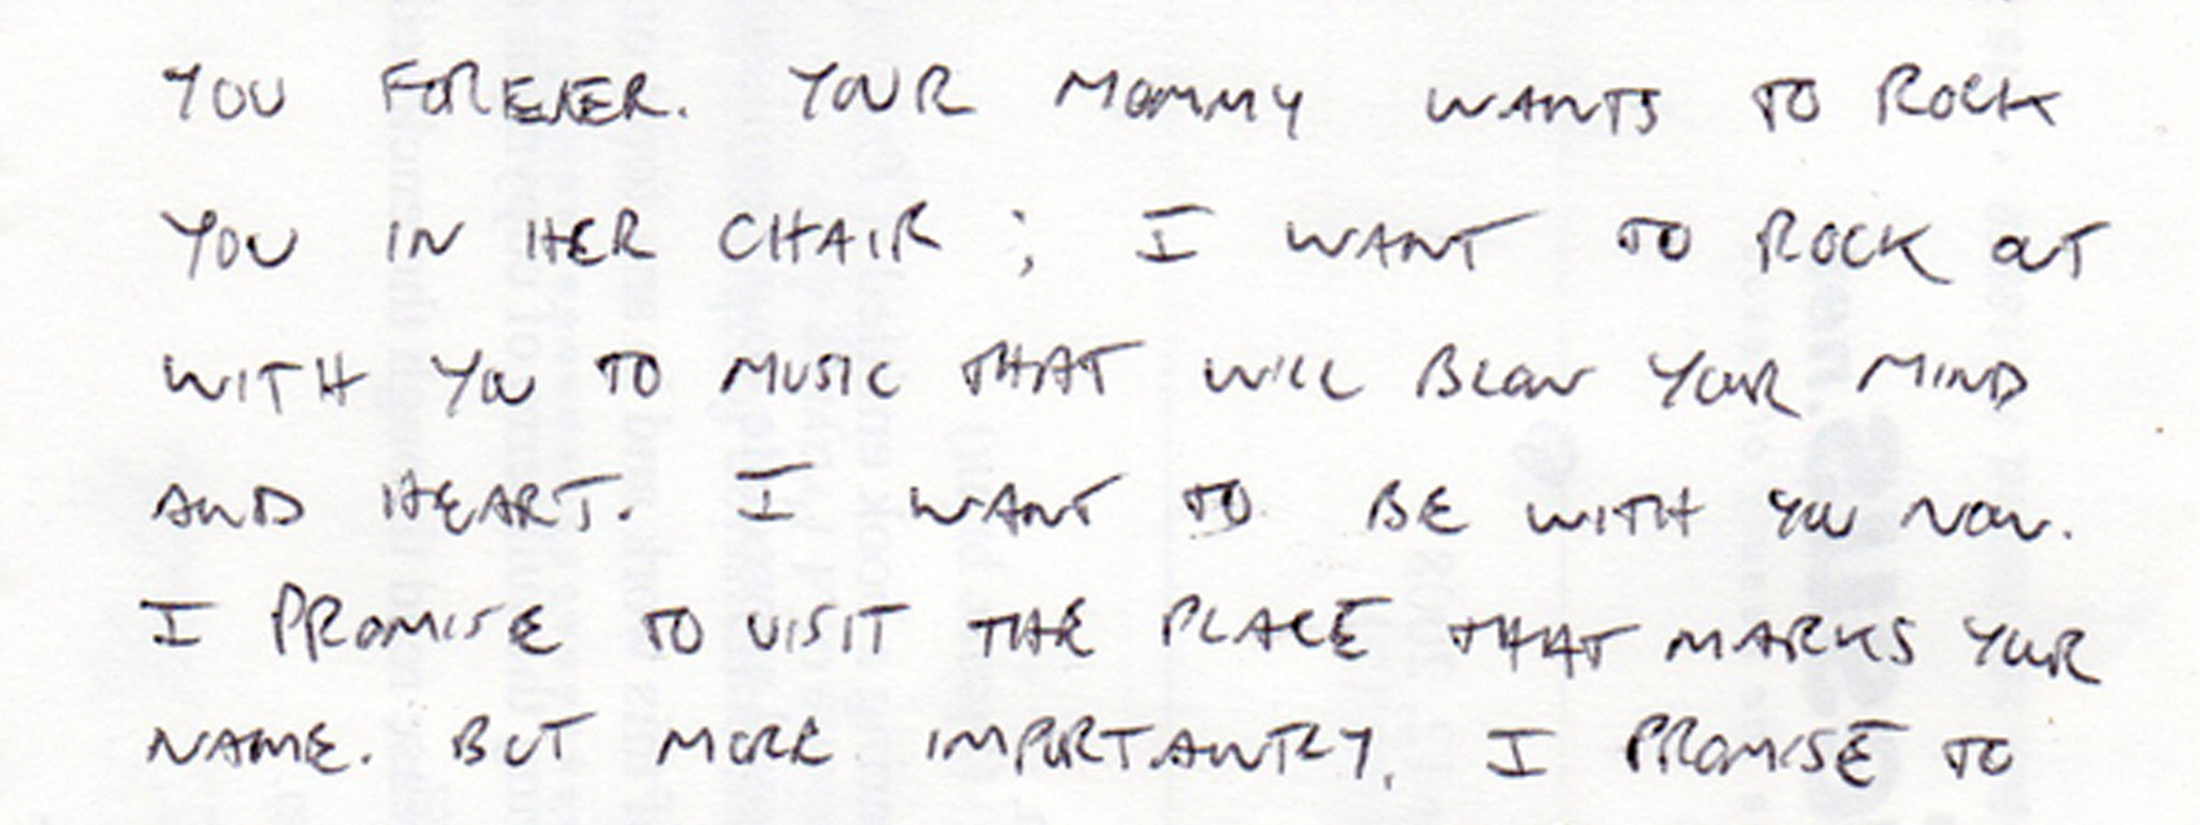 YOU FOREVER. YOUR MOMMY WANTS TO ROCK
YOU IN HER CHAIR; I WANT TO ROCK OUT
WITH YOU TO MUSIC THAT WILL BLOW YOUR MIND
AND HEART. I WANT TO BE WITH YOU NOW.
I PROMISE TO VISIT THE PLACE THAT MARKS YOUR
NAME. BUT MORE IMPORTANTLY, I PROMISE TO